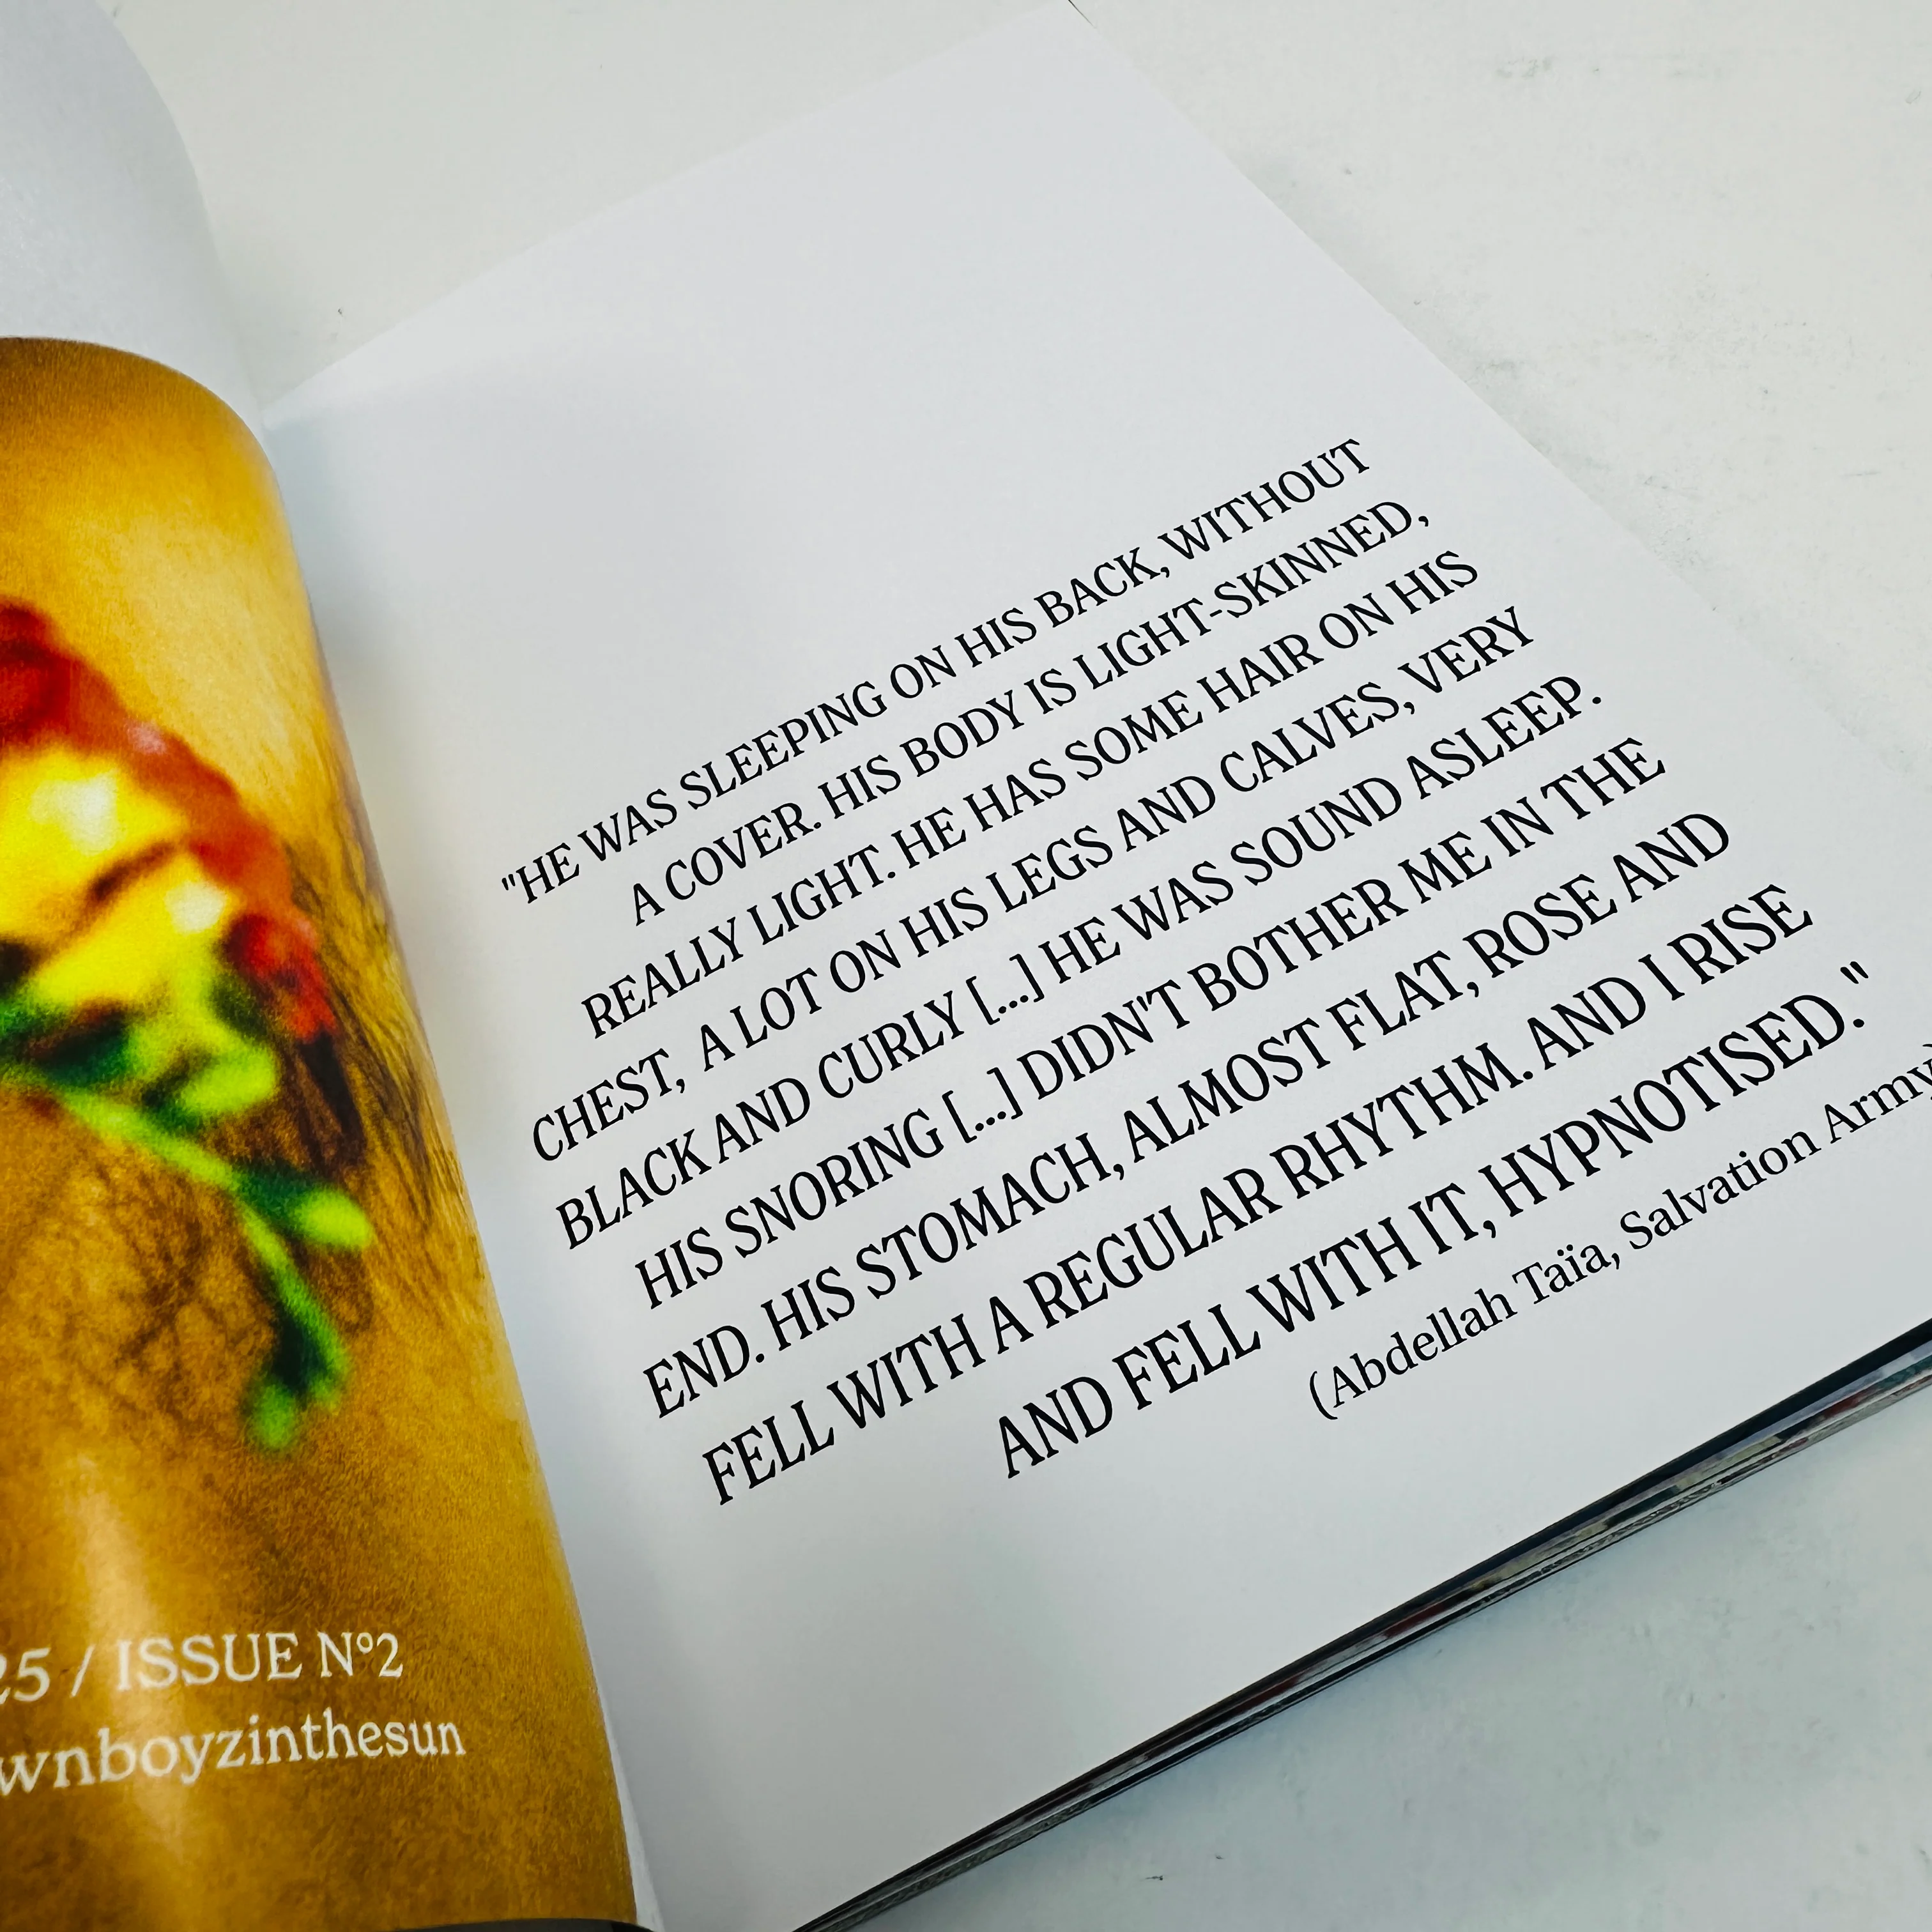 25 / ISSUE Nº2
wnboyzinthesun
"HE WAS SLEEPING ON HIS BACK, WITHOUT
A COVER. HIS BODY IS LIGHT-SKINNED,
REALLY LIGHT. HE HAS SOME HAIR ON HIS
CHEST, A LOT ON HIS LEGS AND CALVES, VERY
BLACK AND CURLY [...] HE WAS SOUND ASLEEP.
HIS SNORING [...] DIDN'T BOTHER ME IN THE
END. HIS STOMACH, ALMOST FLAT, ROSE AND
FELL WITH A REGULAR RHYTHM. AND I RISE
AND FELL WITH IT, HYPNOTISED."
(Abdellah Taïa, Salvation Army)